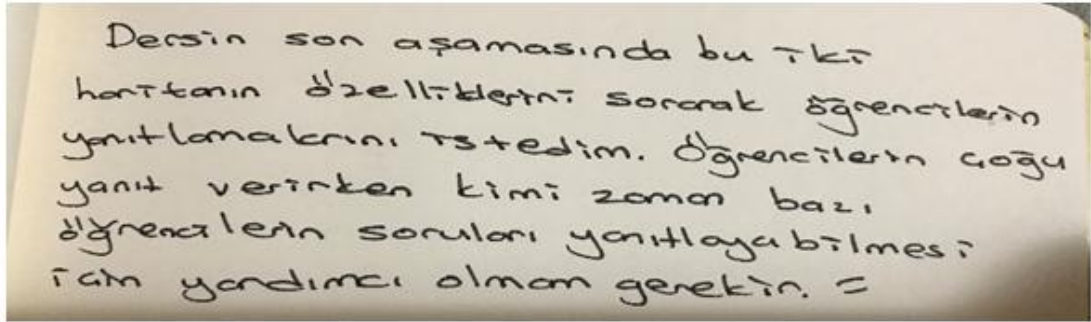 Dersin son aşamasında bu iki
haritanın özelliklerini sorarak öğrencilerin
yanıtlamalarını istedim. Öğrencilerin çoğu
yanıt verirken kimi zaman bazı
öğrencilerin soruları yanıtlayabilmesi
için yardımcı olmam gerekir. =